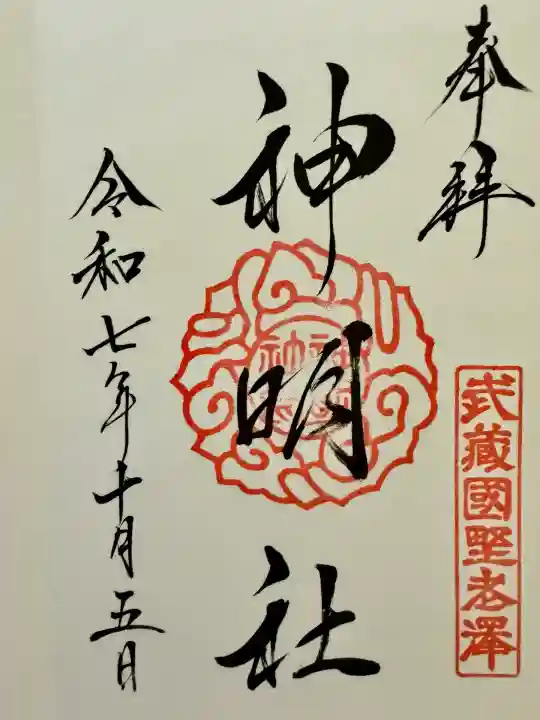 奉拝
武蔵國野老澤
神明社
令和七年十月五日